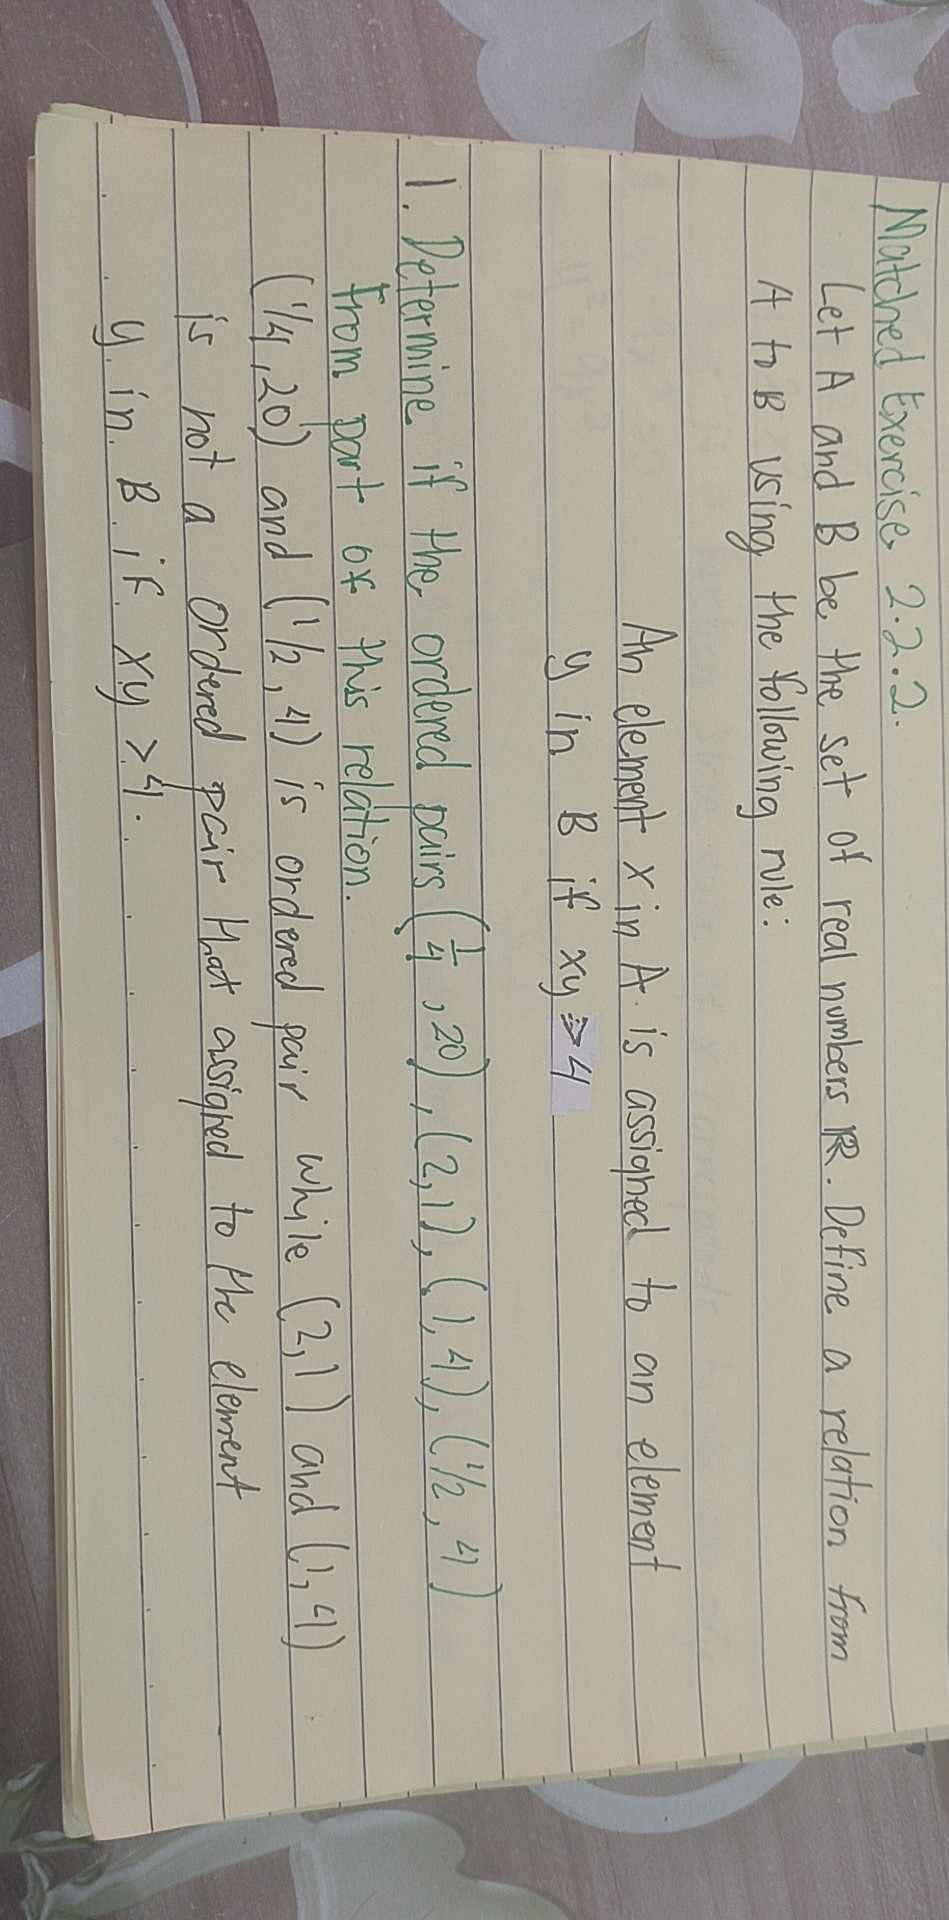 Matched Exercise 2.2.2.
Let A and B be the set of real numbers ℝ. Define a relation from
A to B using the following rule:
An element x in A is assigned to an element
y in B if xy ≥ 4
1. Determine if the ordered pairs (1/4, 20), (2,1), (1,4), (1/2, 4)
from part of this relation.
(1/4, 20) and (1/2, 4) is ordered pair while (2,1) and (1,4)
is not a ordered pair that assigned to the element
y in B if xy > 4.